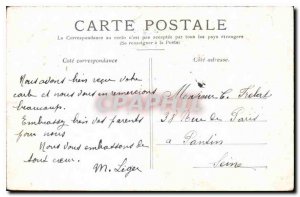 CARTE POSTALE
La Correspondance au verso n'est pas acceptée par tous les pays étrangers
(Se renseigner à la Poste)
Côté correspondance
Côté adresse.
Nous avons bien reçu votre
carte et nous vous en remercions
beaucoup.
Embrassez bien vos parents
pour nous
Nous vous embrassons de
tout cœur.
M. Léger
Monsieur C.
38 Rue de Paris
à Pantin
Seine